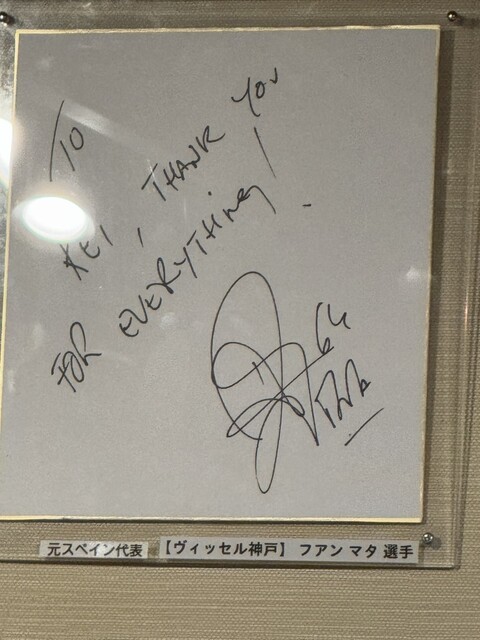 TO
KEI, THANK YOU
FOR EVERYTHING!
64
元スペイン代表 【ヴィッセル神戸】 フアン マタ 選手